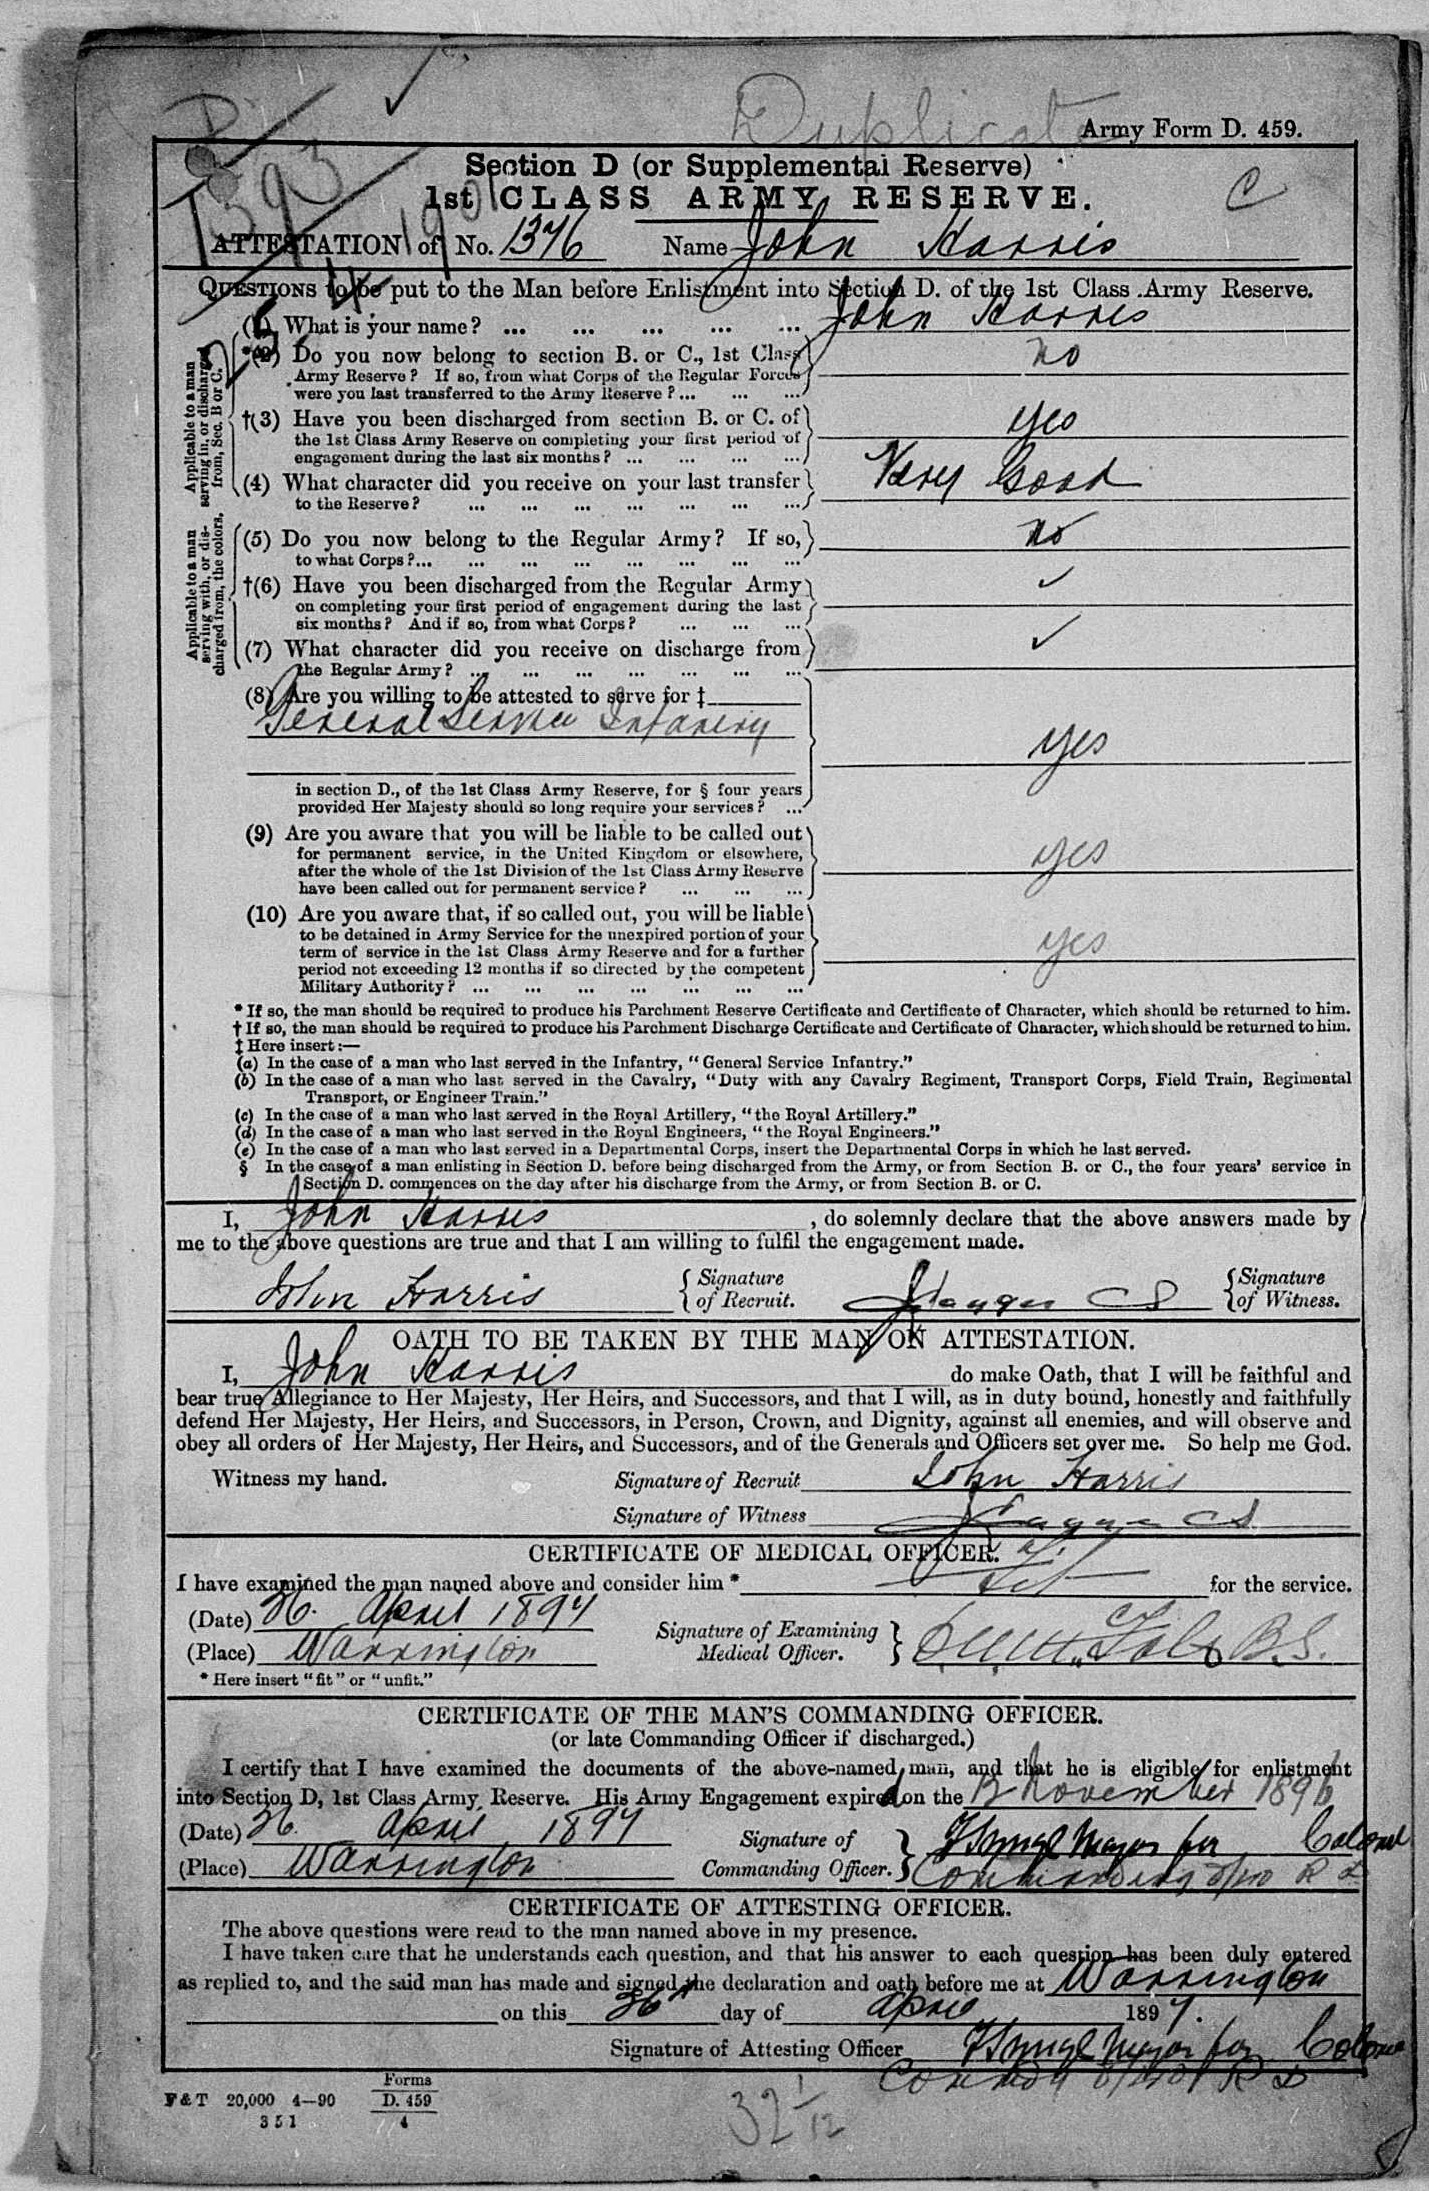 Duplicate
Army Form D. 459.
1393
Section D (or Supplemental Reserve)
1st CLASS ARMY RESERVE.
C
ATTESTATION of No. 1376 Name John Harris
QUESTIONS to be put to the Man before Enlistment into Section D. of the 1st Class Army Reserve.
Applicable to a man serving in, or discharged from, Sec. B or C.
(1) What is your name? ... ... ... ... ... John Harris
*(2) Do you now belong to section B. or C., 1st Class no
Army Reserve? If so, from what Corps of the Regular Forces
were you last transferred to the Army Reserve? ... ... ...
†(3) Have you been discharged from section B. or C. of yes
the 1st Class Army Reserve on completing your first period of
engagement during the last six months? ... ... ... ...
(4) What character did you receive on your last transfer Very Good
to the Reserve? ... ... ... ... ... ... ...
Applicable to a man serving with, or discharged from, the colors.
(5) Do you now belong to the Regular Army? If so, no
to what Corps?... ... ... ... ... ... ... ...
†(6) Have you been discharged from the Regular Army ✓
on completing your first period of engagement during the last
six months? And if so, from what Corps? ... ... ...
(7) What character did you receive on discharge from ✓
the Regular Army? ... ... ... ... ... ... ...
(8) Are you willing to be attested to serve for ‡
General Service Infantry yes
in section D., of the 1st Class Army Reserve, for § four years
provided Her Majesty should so long require your services? ...
(9) Are you aware that you will be liable to be called out yes
for permanent service, in the United Kingdom or elsewhere,
after the whole of the 1st Division of the 1st Class Army Reserve
have been called out for permanent service? ... ... ...
(10) Are you aware that, if so called out, you will be liable yes
to be detained in Army Service for the unexpired portion of your
term of service in the 1st Class Army Reserve and for a further
period not exceeding 12 months if so directed by the competent
Military Authority? ... ... ... ... ... ... ...
* If so, the man should be required to produce his Parchment Reserve Certificate and Certificate of Character, which should be returned to him.
† If so, the man should be required to produce his Parchment Discharge Certificate and Certificate of Character, which should be returned to him.
‡ Here insert:—
(a) In the case of a man who last served in the Infantry, "General Service Infantry."
(b) In the case of a man who last served in the Cavalry, "Duty with any Cavalry Regiment, Transport Corps, Field Train, Regimental
Transport, or Engineer Train."
(c) In the case of a man who last served in the Royal Artillery, "the Royal Artillery."
(d) In the case of a man who last served in the Royal Engineers, "the Royal Engineers."
(e) In the case of a man who last served in a Departmental Corps, insert the Departmental Corps in which he last served.
§ In the case of a man enlisting in Section D. before being discharged from the Army, or from Section B. or C., the four years' service in
Section D. commences on the day after his discharge from the Army, or from Section B. or C.
I, John Harris, do solemnly declare that the above answers made by
me to the above questions are true and that I am willing to fulfil the engagement made.
John Harris { Signature of Recruit. CS { Signature of Witness.
OATH TO BE TAKEN BY THE MAN ON ATTESTATION.
I, John Harris do make Oath, that I will be faithful and
bear true Allegiance to Her Majesty, Her Heirs, and Successors, and that I will, as in duty bound, honestly and faithfully
defend Her Majesty, Her Heirs, and Successors, in Person, Crown, and Dignity, against all enemies, and will observe and
obey all orders of Her Majesty, Her Heirs, and Successors, and of the Generals and Officers set over me. So help me God.
Witness my hand. Signature of Recruit John Harris
Signature of Witness CS
CERTIFICATE OF MEDICAL OFFICER.
I have examined the man named above and consider him * Fit for the service.
(Date) 26. April 1897
(Place) Warrington Signature of Examining Medical Officer. }
* Here insert "fit" or "unfit."
CERTIFICATE OF THE MAN'S COMMANDING OFFICER.
(or late Commanding Officer if discharged.)
I certify that I have examined the documents of the above-named man, and that he is eligible for enlistment
into Section D, 1st Class Army Reserve. His Army Engagement expired on the 13 November 1896
(Date) 26. April 1897 Signature of Major for Colonel
(Place) Warrington Commanding Officer. } Commanding R D
CERTIFICATE OF ATTESTING OFFICER.
The above questions were read to the man named above in my presence.
I have taken care that he understands each question, and that his answer to each question has been duly entered
as replied to, and the said man has made and signed the declaration and oath before me at Warrington
on this 26th day of April 1897.
Signature of Attesting Officer Major for Colonel
R D
F & T 20,000 4—90
351
Forms
D. 459
4
32 1/12